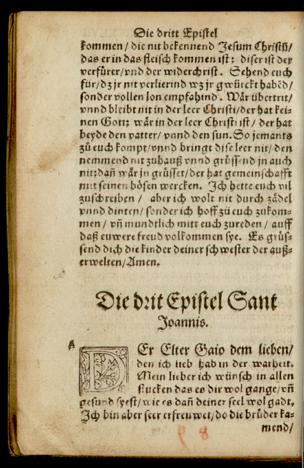 Die dritt Epistel
kommen/ die nit bekennend Jesum Christū/
das er in das fleisch kommen ist: diser ist der
verfürer/vnd der widerchrist. Sehend euch
für/dz jr nit verlierind wz jr gwürckt habēd/
sonder vollen lon empfahind. Wär übertrit/
vnnd bleibt nit in der leer Christi/ der hat kei-
nen Gott: wär in der leer Christi ist/ der hat
beyde den vatter/ vnnd den sun. So jemants
zů euch kompt/vnnd bringt dise leer nit/ den
nemmend nit zuhauß vnnd grüssend jn auch
nit: dañ wär jn grüsset/der hat gemeinschafft
mit seinen bösen wercken. Ich hette euch vil
zuschreiben / aber ich wolt nit durch zädel
vnnd dinten/ sonder ich hoff zů euch zukom-
men / vñ mundtlich mitt euch zureden/ auff
daß euwere freud volkommen sye. Es grüs-
send dich die kinder deiner schwester der auß-
erwelten/Amen.
Die drit Epistel Sant
Joannis.
DEr Elter Gaio dem lieben/
den ich lieb hab in der warheit.
Mein lieber ich wünsch in allen
stucken das es dir wol gange/ vñ
gesund syest/ wie es dañ deiner seel wol gadt.
Ich bin aber seer erfreuwet/ do die brüder ka-
mend/